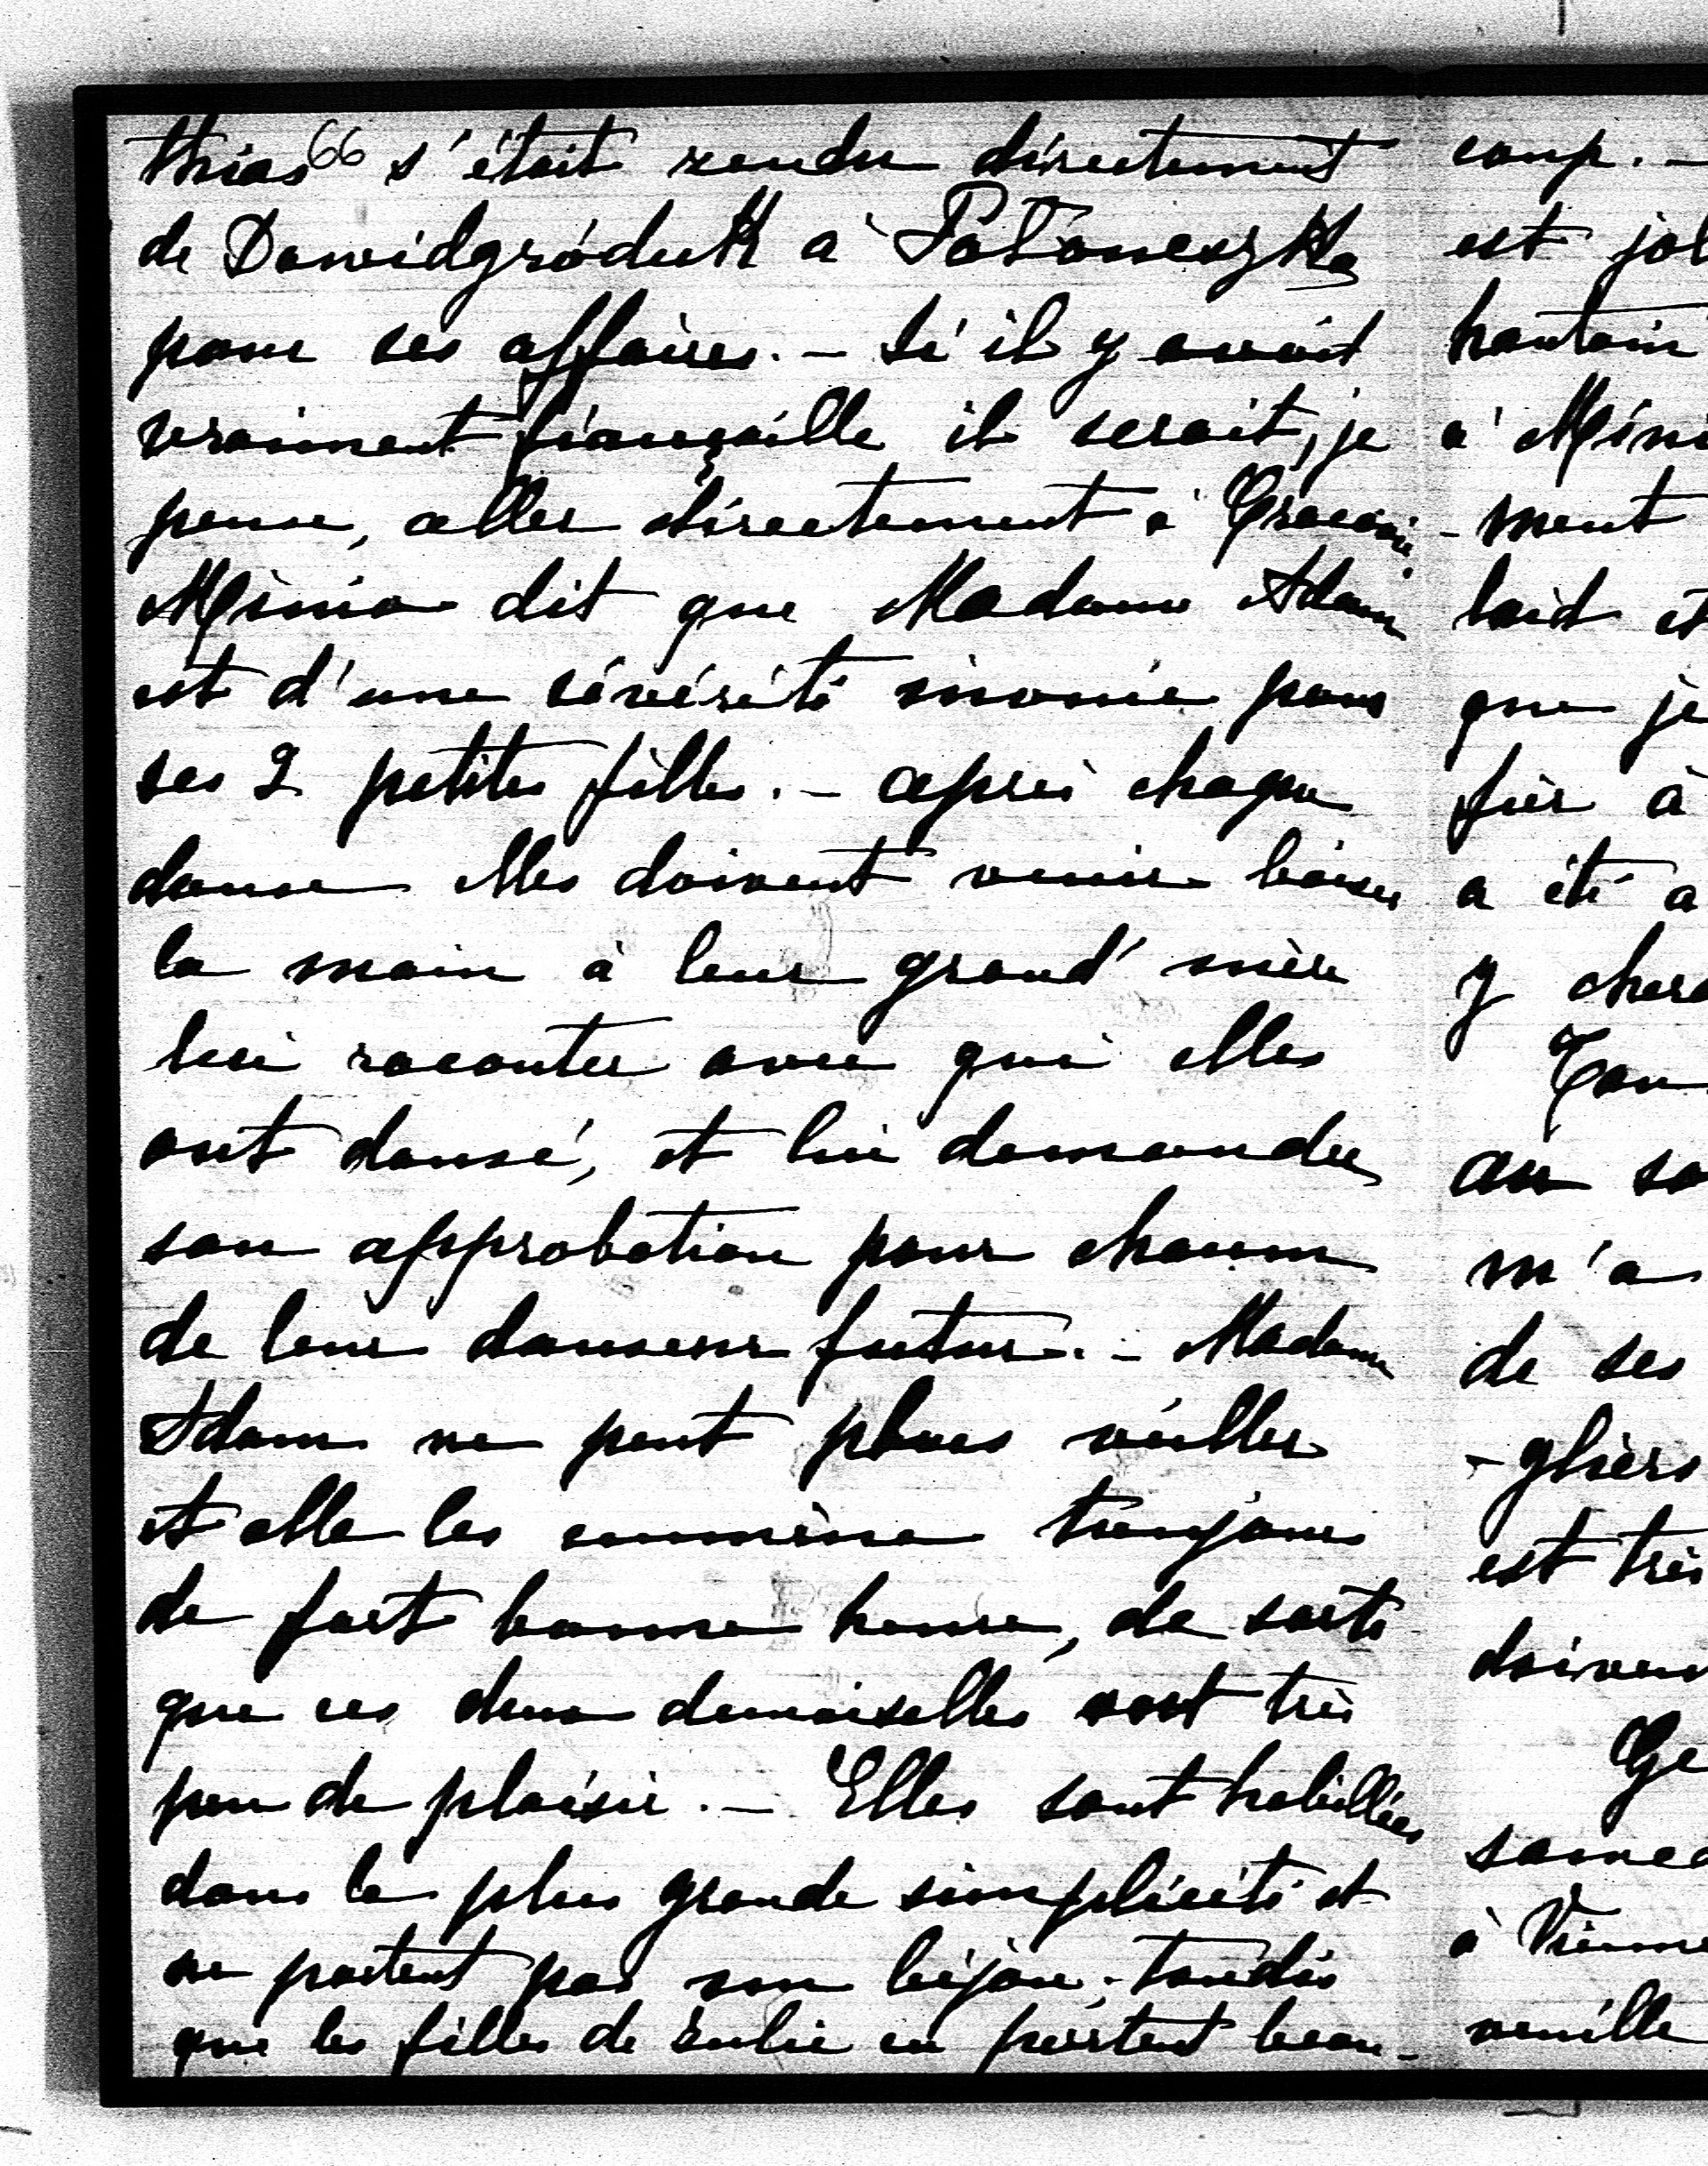 thias 66 s'était rendu directement
de Dawidgródek à Połoneszka
pour ses affaires. – Si il y avait
vraiment fiançaille il serait, je
pense, aller directement à Cracovie
Mimia dit que Madame Adam
est d'une sévérité inouie pour
ses 2 petites filles. – après chaque
danse elles doivent venir baiser
la main à leur grand'mère
lui raconter avec qui elles
ont dansé, et lui demander
son approbation pour chacun
de leur danseur futur. – Madame
Adam ne peut plus veiller
et elle les emmène toujours
de fort bonne heure, de sorte
que ces deux demoiselles ont très
peu de plaisir. – Elles sont habillées
dans la plus grande simplicité et
ne portent pas un bijou; tandis
que les filles de Julie en portent beau-
coup. –
est jol
hautain
à Mimi
-ment
laid et
que je
fier à
a été a
y cher
au so
m'a
de ses
-gliers
est très
doiven
Ge
samed
à Vienne
veuille